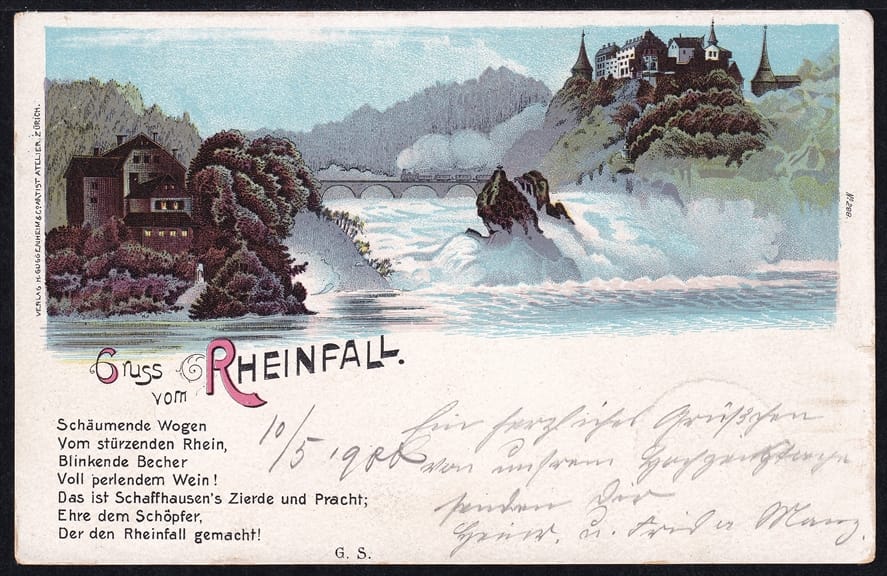 VERLAG H. GUGGENHEIM & Co ARTIST ATELIER, ZÜRICH.
No 288.
Gruss vom RHEINFALL.
Schäumende Wogen
Vom stürzenden Rhein,
Blinkende Becher
Voll perlendem Wein!
Das ist Schaffhausen's Zierde und Pracht;
Ehre dem Schöpfer,
Der den Rheinfall gemacht!
G. S.
10/5 1900
Ein herzliches Grüßchen
von unserem
senden Dir
Heinr. u. Frida